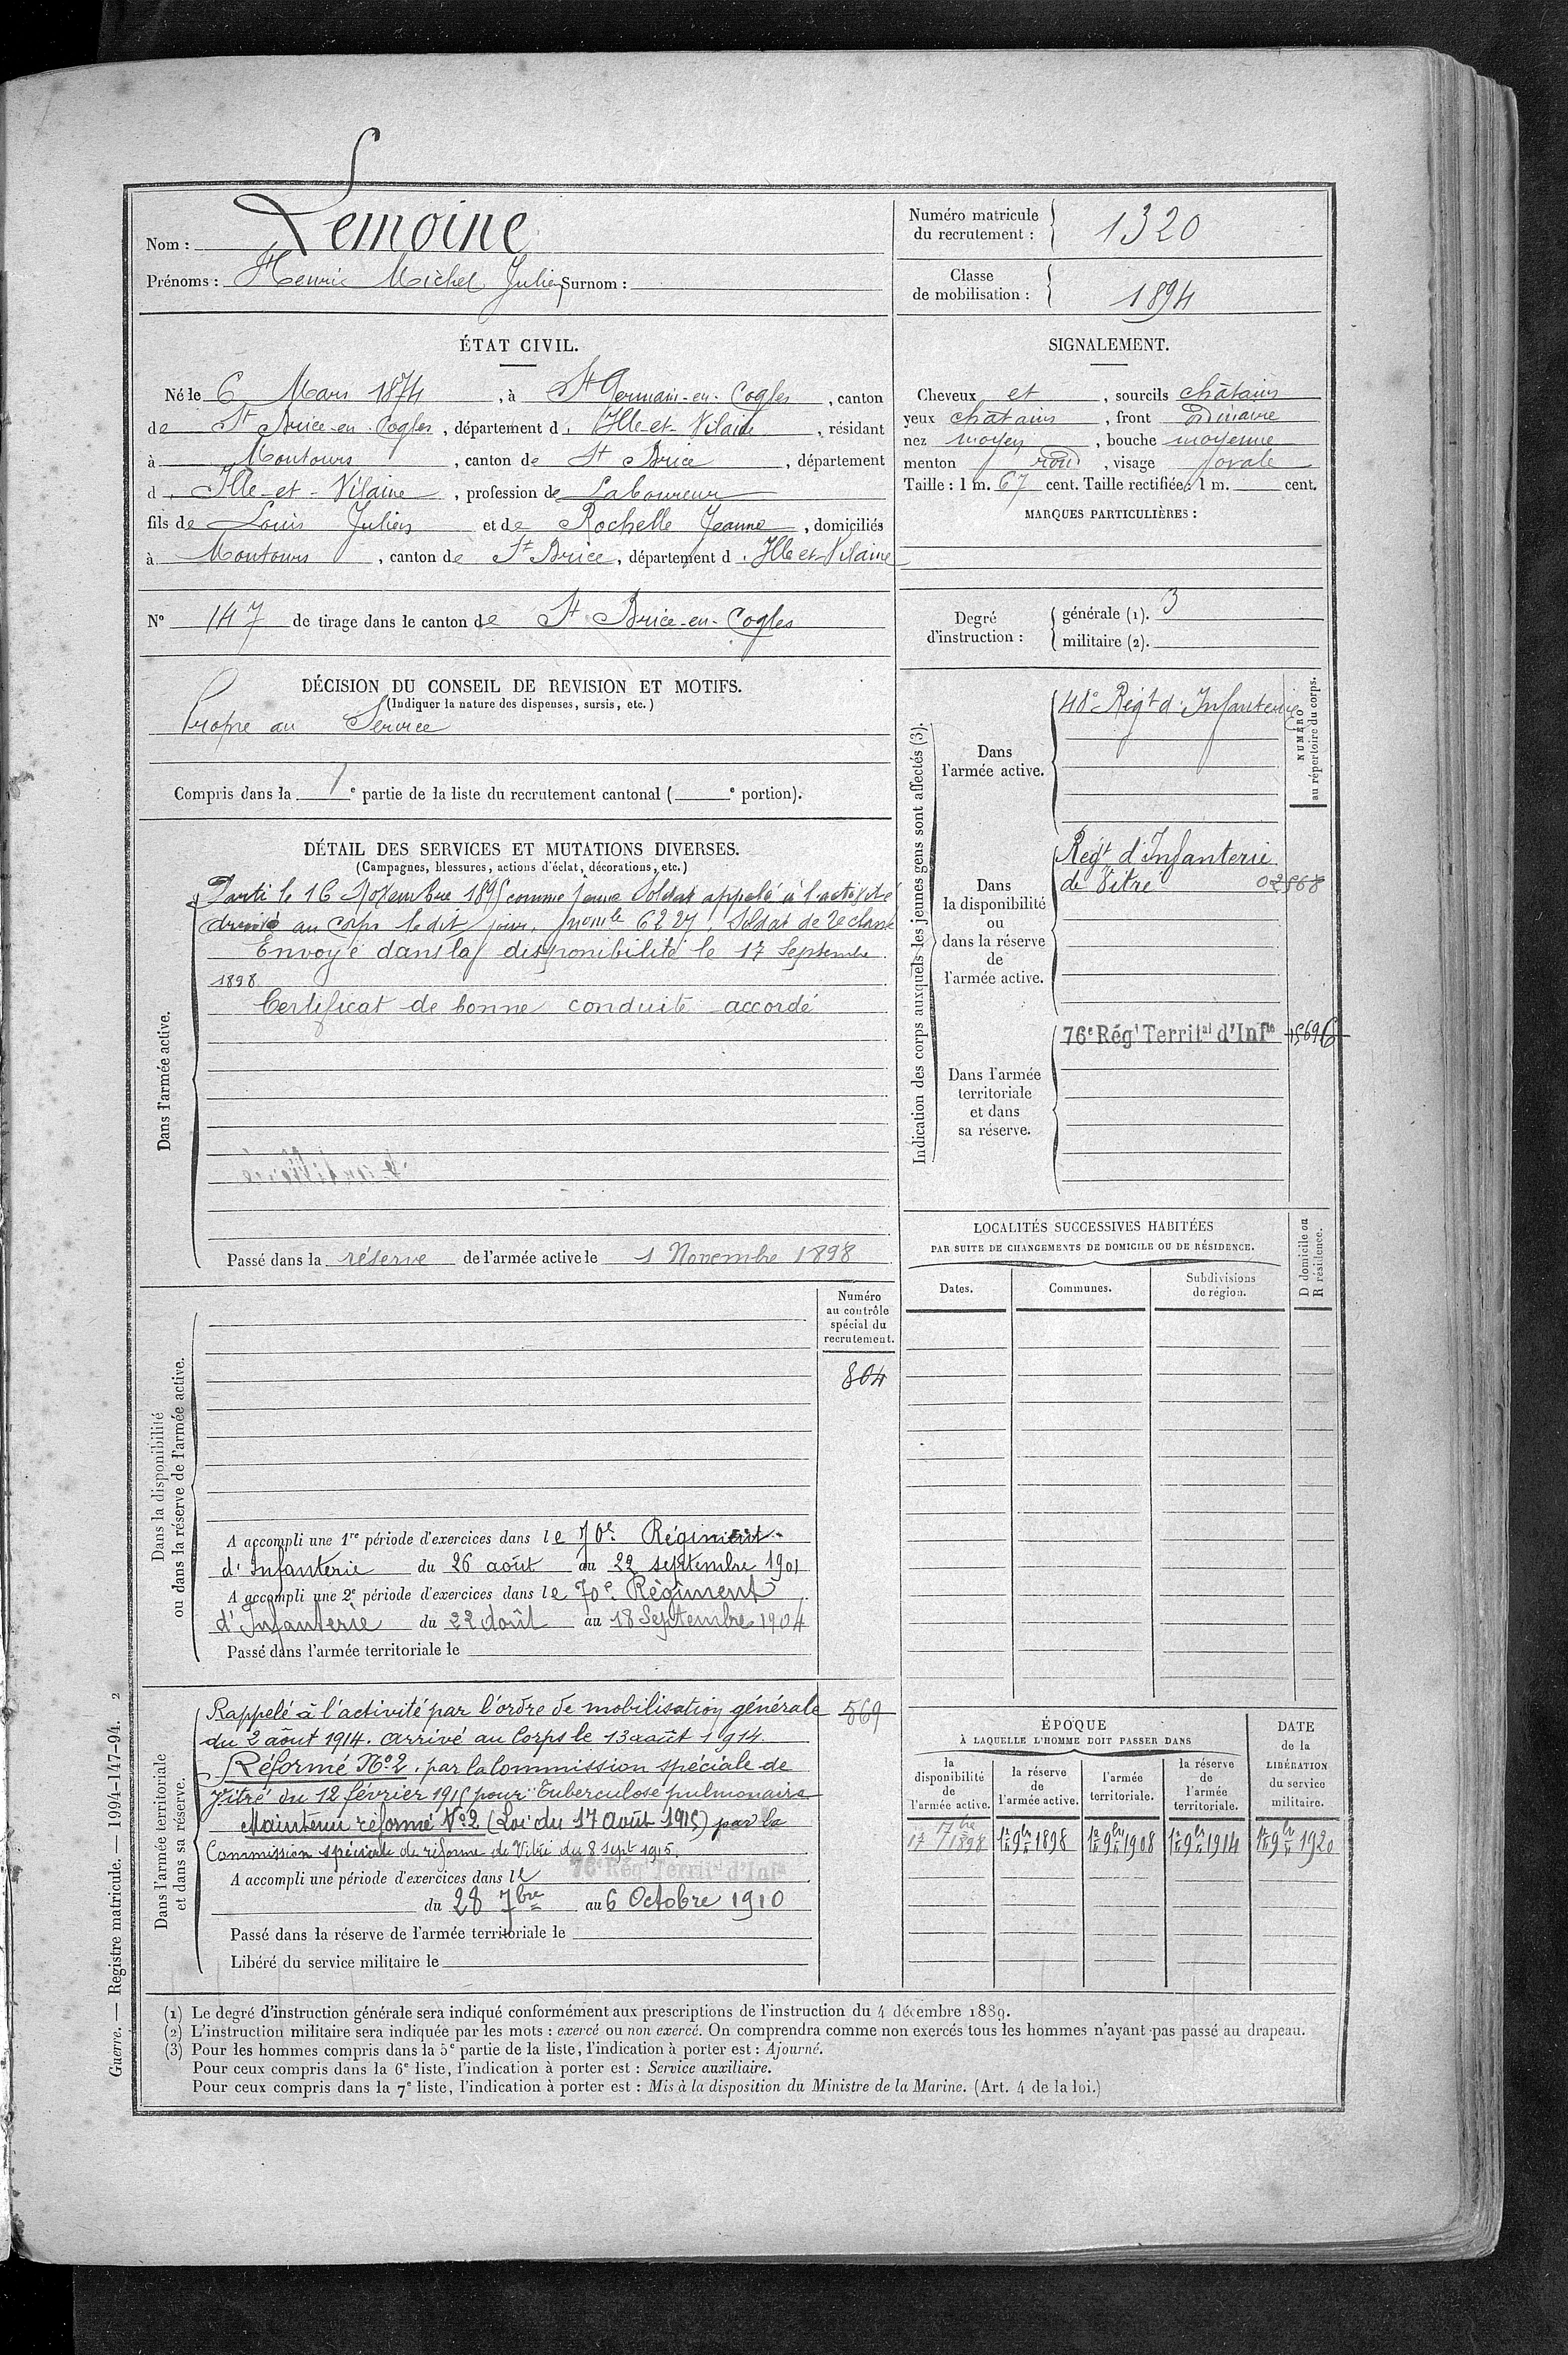 Nom : Lemoine
Prénoms : Henri Michel Julien Surnom :
Numéro matricule du recrutement : 1320
Classe de mobilisation : 1894
ÉTAT CIVIL.
Né le 6 Mars 1874, à St Germain-en-Cogles, canton
de St Brice-en-Cogles, département d. Ille-et-Vilaine, résidant
à Montours, canton de St Brice, département
d. Ille-et-Vilaine, profession de Laboureur
fils de Louis Julien et de Rochelle Jeanne, domiciliés
à Montours, canton de St Brice, département d. Ille et Vilaine
N° 147 de tirage dans le canton de St Brice-en-Cogles
SIGNALEMENT.
Cheveux et, sourcils châtains
yeux châtains, front ordinaire
nez moyen, bouche moyenne
menton rond, visage ovale
Taille : 1 m. 67 cent. Taille rectifiée : 1 m. cent.
MARQUES PARTICULIÈRES :
Degré d'instruction : générale (1). 3
militaire (2).
DÉCISION DU CONSEIL DE REVISION ET MOTIFS.
(Indiquer la nature des dispenses, sursis, etc.)
Propre au Service
Compris dans la 1e partie de la liste du recrutement cantonal ( e portion).
DÉTAIL DES SERVICES ET MUTATIONS DIVERSES.
(Campagnes, blessures, actions d'éclat, décorations, etc.)
Dans l'armée active.
Parti le 16 Novembre 1895 comme jeune Soldat appelé à l'activité
arrivé au corps le dit jour, 6227, Soldat de 2e classe
Envoyé dans la disponibilité le 17 Septembre
1898
Certificat de bonne conduite accordé
Passé dans la réserve de l'armée active le 1 Novembre 1898
Indication des corps auxquels les jeunes gens sont affectés (3).
NUMÉRO au répertoire du corps.
Dans l'armée active.
48e Régt d'Infanterie
Dans la disponibilité ou dans la réserve de l'armée active.
Régt d'Infanterie
de Vitré 02568
Dans l'armée territoriale et dans sa réserve.
76e Régt Territal d'Infie 15696
LOCALITÉS SUCCESSIVES HABITÉES
PAR SUITE DE CHANGEMENTS DE DOMICILE OU DE RÉSIDENCE.
Dates. Communes. Subdivisions de région.
D domicile ou R résidence.
Dans la disponibilité ou dans la réserve de l'armée active.
Numéro au contrôle spécial du recrutement.
804
A accompli une 1re période d'exercices dans le 70e Régiment
d'Infanterie du 26 août au 22 septembre 1901
A accompli une 2e période d'exercices dans le 70e Régiment
d'Infanterie du 22 août au 18 Septembre 1904
Passé dans l'armée territoriale le
Dans l'armée territoriale et dans sa réserve.
569
Rappelé à l'activité par l'ordre de mobilisation générale
du 2 août 1914. arrivé au Corps le 13 août 1914.
Réformé No 2. par la Commission spéciale de
Vitré du 12 février 1915 pour "Tuberculose pulmonaire
Maintenu réformé No 2 (Loi du 17 Août 1915) par la
Commission spéciale de réforme de Vitré du 8 sept 1915.
A accompli une période d'exercices dans le 76e Régt Territal d'Infie
du 28 7bre au 6 Octobre 1910
Passé dans la réserve de l'armée territoriale le
Libéré du service militaire le
ÉPOQUE
À LAQUELLE L'HOMME DOIT PASSER DANS
la disponibilité de l'armée active. la réserve de l'armée active. l'armée territoriale. la réserve de l'armée territoriale.
DATE de la LIBÉRATION du service militaire.
17 7bre 1898 1er 9bre 1898 1er 9bre 1908 1er 9bre 1914 1er 9bre 1920
(1) Le degré d'instruction générale sera indiqué conformément aux prescriptions de l'instruction du 4 décembre 1889.
(2) L'instruction militaire sera indiquée par les mots : exercé ou non exercé. On comprendra comme non exercés tous les hommes n'ayant pas passé au drapeau.
(3) Pour les hommes compris dans la 5e partie de la liste, l'indication à porter est : Ajourné.
Pour ceux compris dans la 6e liste, l'indication à porter est : Service auxiliaire.
Pour ceux compris dans la 7e liste, l'indication à porter est : Mis à la disposition du Ministre de la Marine. (Art. 4 de la loi.)
Guerre. — Registre matricule. — 1994-147-94. 2